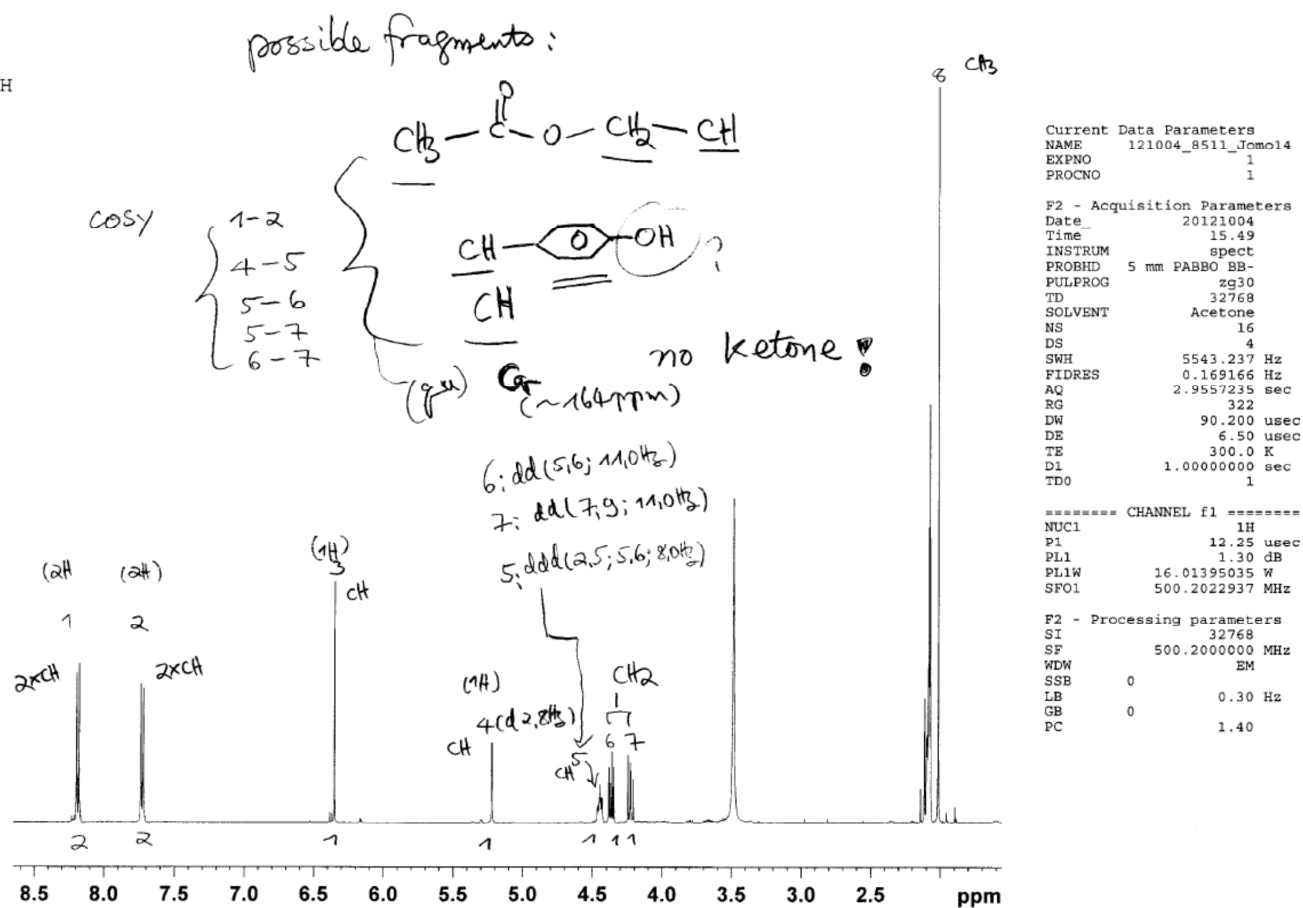 possible fragments:
H
8 CH3
O
CH3 — C — O — CH2 — CH
COSY
1-2
4-5
5-6
5-7
6-7
CH — OH ?
CH
no ketone !
(~164 ppm)
6: dd (5,6; 11,0Hz)
7: dd (7,9; 11,0Hz)
5: ddd (2,5; 5,6; 8,0Hz)
(2H (2H) (1H)
1 2 3
2xCH 2xCH CH
(1H) CH2
4 (d 2,8Hz) 6 7
CH CH 5
2 2 1 1 1 1 1
8.5 8.0 7.5 7.0 6.5 6.0 5.5 5.0 4.5 4.0 3.5 3.0 2.5 ppm
Current Data Parameters
NAME 121004_8511_Jomo14
EXPNO 1
PROCNO 1
F2 - Acquisition Parameters
Date_ 20121004
Time 15.49
INSTRUM spect
PROBHD 5 mm PABBO BB-
PULPROG zg30
TD 32768
SOLVENT Acetone
NS 16
DS 4
SWH 5543.237 Hz
FIDRES 0.169166 Hz
AQ 2.9557235 sec
RG 322
DW 90.200 usec
DE 6.50 usec
TE 300.0 K
D1 1.00000000 sec
TD0 1
======== CHANNEL f1 ========
NUC1 1H
P1 12.25 usec
PL1 1.30 dB
PL1W 16.01395035 W
SFO1 500.2022937 MHz
F2 - Processing parameters
SI 32768
SF 500.2000000 MHz
WDW EM
SSB 0
LB 0.30 Hz
GB 0
PC 1.40